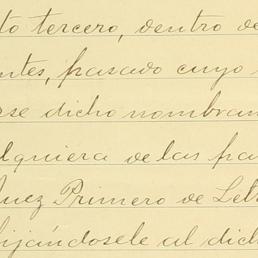 to tercero, dentro de
ntes, pasado cuyo
rse dicho nombram
lquiera de las pa
uez Primero de Let
ijándosele al dich